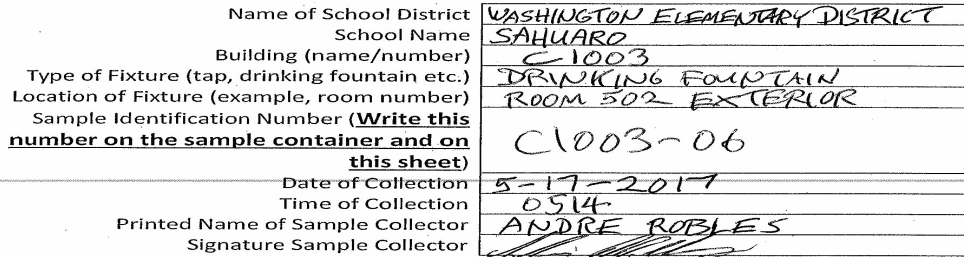 Name of School District WASHINGTON ELEMENTARY DISTRICT
School Name SAHUARO
Building (name/number) C1003
Type of Fixture (tap, drinking fountain etc.) DRINKING FOUNTAIN
Location of Fixture (example, room number) ROOM 502 EXTERIOR
Sample Identification Number (Write this
number on the sample container and on C1003-06
this sheet)
Date of Collection 5-17-2017
Time of Collection 0514
Printed Name of Sample Collector ANDRE ROBLES
Signature Sample Collector